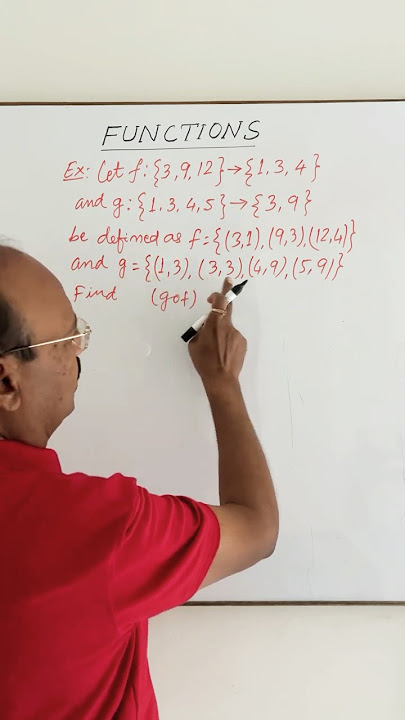 FUNCTIONS
Ex: Let f: {3, 9, 12} → {1, 3, 4}
and g: {1, 3, 4, 5} → {3, 9}
be defined as f = {(3,1), (9,3), (12,4)}
and g = {(1,3), (3,3), (4,9), (5,9)}
Find (gof)